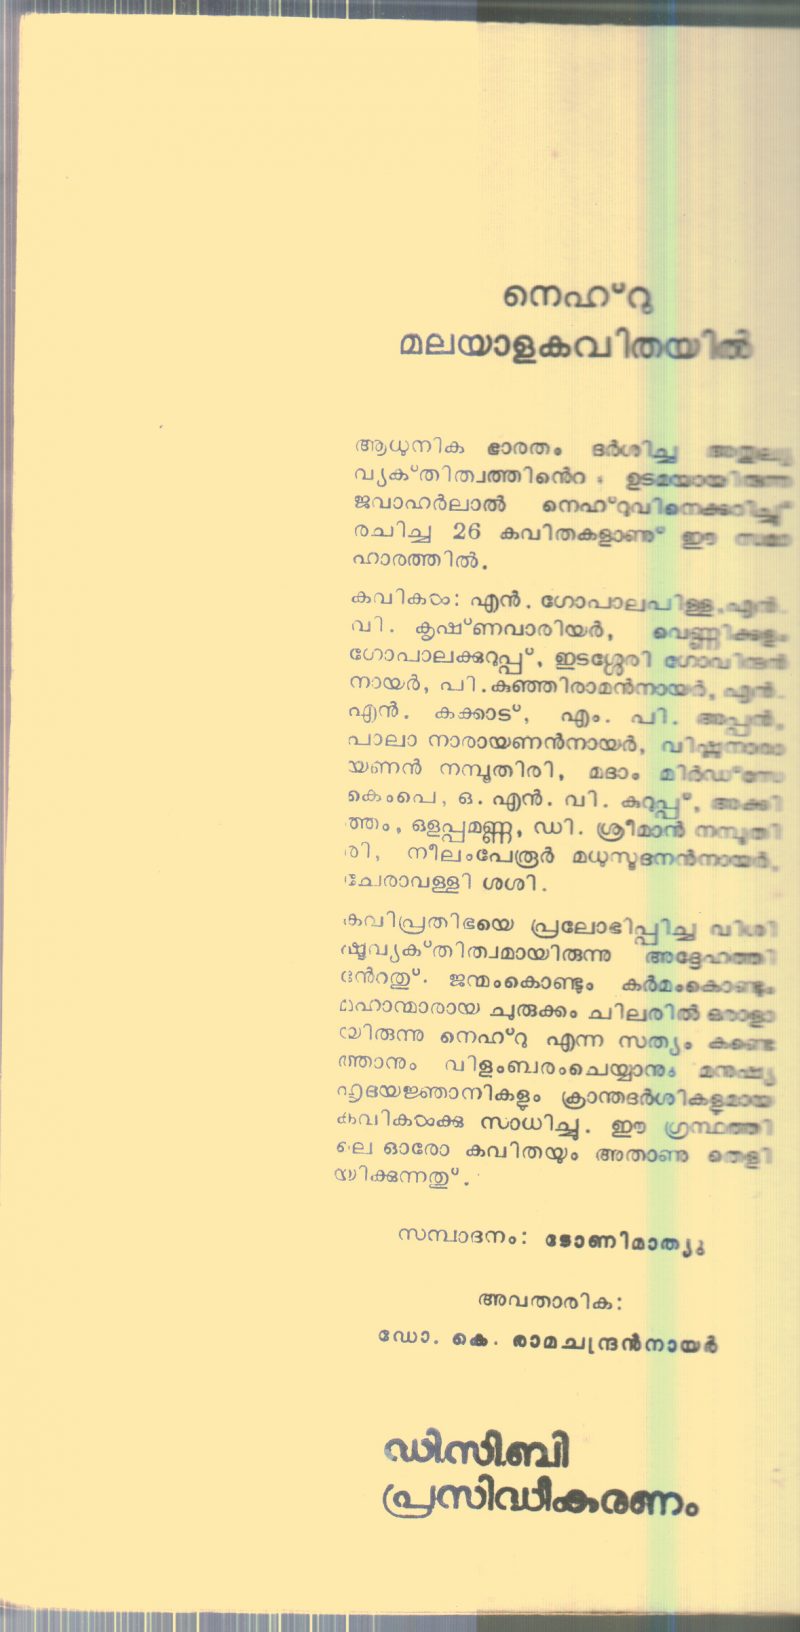 നെഹ്റു
മലയാളകവിതയിൽ
ആധുനിക ഭാരതം ദർശിച്ച അതുല്യ
വ്യക്തിത്വത്തിൻെറ ഉടമയായിരുന്ന
ജവാഹർലാൽ നെഹ്റുവിനെക്കുറിച്ച്
രചിച്ച 26 കവിതകളാണു് ഈ സമാ
ഹാരത്തിൽ.
കവികൾ: എൻ. ഗോപാലപിള്ള, എൻ.
വി. കൃഷ്ണവാരിയർ, വെണ്ണിക്കുളം
ഗോപാലക്കുറുപ്പ്, ഇടശ്ശേരി ഗോവിന്ദൻ
നായർ, പി.കുഞ്ഞിരാമൻനായർ, എൻ.
എൻ. കക്കാട്, എം. പി. അപ്പൻ,
പാലാ നാരായണൻനായർ, വിഷ്ണുനാരാ
യണൻ നമ്പൂതിരി, മദാം മിർഡ്സേ
കെംപെ, ഒ. എൻ. വി. കുറുപ്പ്, അക്കി
ത്തം, ഒളപ്പമണ്ണ, ഡി. ശ്രീമാൻ നമ്പൂതി
രി, നീലംപേരൂർ മധുസൂദനൻനായർ,
ചേരാവള്ളി ശശി.
കവിപ്രതിഭയെ പ്രലോഭിപ്പിച്ച വിശി
ഷ്ടവ്യക്തിത്വമായിരുന്നു അദ്ദേഹത്തി
ൻേറതു്. ജന്മംകൊണ്ടും കർമംകൊണ്ടും
മഹാന്മാരായ ചുരുക്കം ചിലരിൽ ഒരാളാ
യിരുന്നു നെഹ്റു എന്ന സത്യം കണ്ടെ
ത്താനും വിളംബരംചെയ്യാനും മനുഷ്യ
ഹൃദയജ്ഞാനികളും ക്രാന്തദർശികളുമായ
കവികൾക്കു സാധിച്ചു. ഈ ഗ്രന്ഥത്തി
ലെ ഓരോ കവിതയും അതാണു തെളി
യിക്കുന്നതു്.
സമ്പാദനം: ടോണിമാത്യു
അവതാരിക:
ഡോ. കെ. രാമചന്ദ്രൻനായർ
ഡി.സി.ബി
പ്രസിദ്ധീകരണം